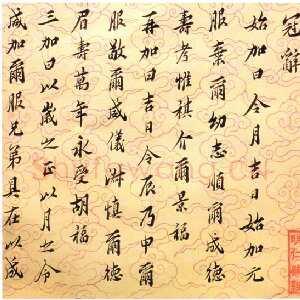 冠辭
始加曰令月吉日始加元
服棄爾幼志順爾成德
壽考惟祺介爾景福
再加曰吉日令辰乃申爾
服敬爾威儀淑慎爾德
眉壽萬年永受胡福
三加曰以歲之正以月之令
咸加爾服兄弟具在以成